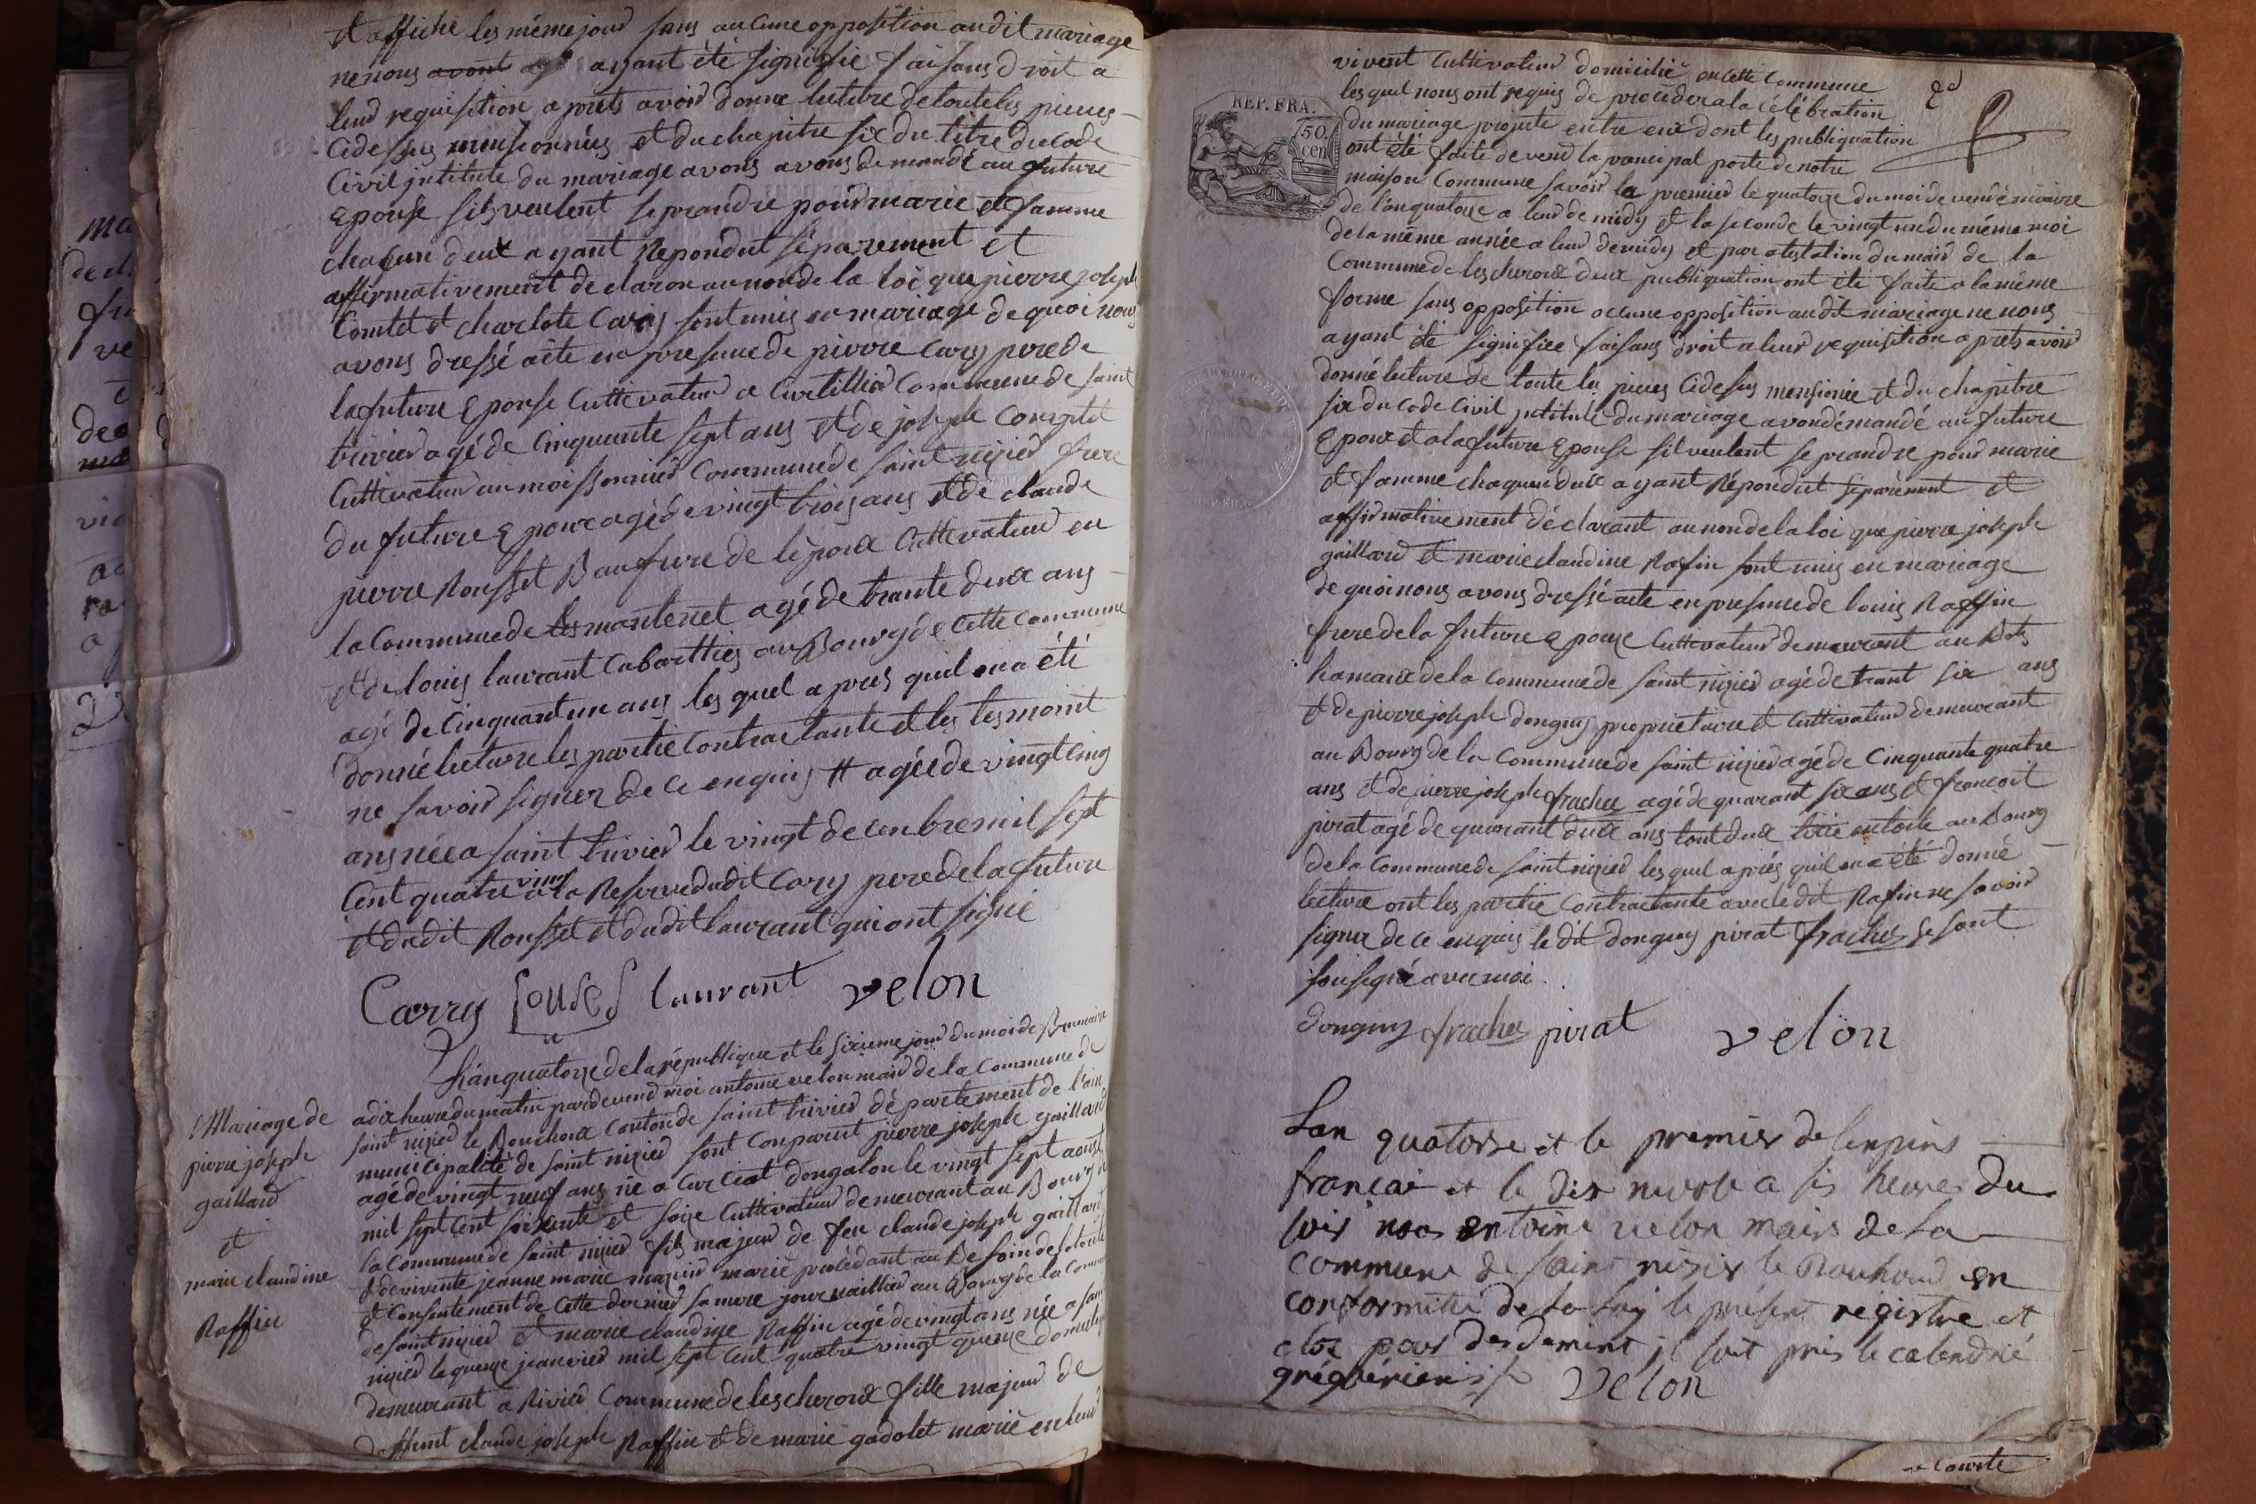 et affiché les même jour sans aucune opposition audit mariage
ne nous avont ayant été signifié faisans droit a
leur requisition apres avoir donné lecture de toute les pieces
cidessus mensionnées et du chapitre six du titre du code
Civil intitulé du mariage avons avons demandé au future
Epouse sils veulent se prandre pour marie et famme
chacun deux ayant Repondut séparement et
affirmativement declaron au nom de la loi que pierre joseph
Comtet et charlote Cary sont unis en mariage de quoi nous
avons dressé acte en presance de pierre Cary pere de
la future Epouse Cultivateur a Curtillier Commune de saint
trivier agé de Cinquante sept ans et de joseph Comptet
Cultivateur au moissonnier Commune de saint nizier frere
du future Epoux agé de vingt trois ans et de claude
pierre Rousset Baufrere de lepoux Cultivateur en
la Commune de les mantenet agé de trante deux ans
et de louis laurant Cabarttier au Bourg de Cette Commune
agé de Cinquant un ans les quel apres quil en a été
donné lecture les partie Contractante et les tesmoint
ne savoir signer de ce enquis # agée de vingt cinq
ans née a saint trivier le vingt decenbre mil sept
Cent quatre vingt a la Reserve dudit Cary pere de la future
et dudit Rousset et dudit laurant qui ont signé
Carry rouset laurant velon
Mariage de
pierre joseph
gaillard
et
marie claudine
Raffin
Lan quatorze de la république et le sixieme jour du moi de Brumaire
a dix heure du matin pardevend moi antoine velon maire de la Commune de
saint nizier le Bouchoux Canton de saint trivier département de l'ain
municipalité de saint nizier sont Conparut pierre joseph gaillard
agé de vingt neuf ans né a Curciat dongalon le vingt sept aoust
mil sept cent soixente et seize Cultivateur demeurant au Bourg de
la Commune de saint nizier fils majeur de feu claude joseph gaillard
et de vivente jeanne marie mazuir marié procédant au
et Consentement de Cette dernier sa mere journaillier au Bourg de la Commune
de saint nizier et marie claudine Raffin agé de vingt ans née a saint
nizier le quenze jeanvier mil sept Cent quatre vingt quenze
demeurant a Rivier Commune de lescheroux fille majeur de
deffunt claude joseph Raffin et de marie gadolet marié en leur
vivent Cultivateur domicilié en cette Commune
les quel nous ont requis de procéder a la célébration
du mariage projeté entre eux dont les publiquation
REP. FRA.
50
cen
ont été faite devend la principal porte de notre
maison Commune savoir la premier le quatorze du moi de vendémiaire
de l'an quatorze a leur de midy et la seconde le vingt un du même moi
de la même année a leur de midy et par atestation du mair de la
Commune de lescheroux deux publiquation ont été faite a la même
forme sans opposition occune opposition audit mariage ne nous
ayant été signifiée faisans droit a leur requisition apres avoir
donné lecture de toute les pieces cidesus mensionée et du chapitre
six du Code Civil intitulé du mariage avon démandé au future
Epoux et a la future Epouse sil veulent se prandre pour marie
et famme chaquun deux ayant Répondut séparément et
affirmativement déclarant au non de la loi que pierre joseph
gaillard et marie claudine Rafin sont unis en mariage
de quoi nous avons dressé acte en presance de louis Raffin
frere de la future epouze Cultivateur demeurant au Bots
hameaux de la Commune de saint nizier agé de trant six ans
et de pierre joseph donguy proprietaire et Cultivateur demeurant
au Bourg de la Commune de saint nizier agé de Cinquante quatre
ans et de pierre joseph frachet agé de quarant six ans et francoit
pirat agé de quarant deux ans tout deux au Bourg
de la Commune de saint nizier les quel apres quil en a été donné
lecture ont les partie Contractante avec le dit Rafin ne savoir
signer de ce enquis le dit donguy pirat frachet se sont
sousigné avec moi
donguy frachet pirat velon
Lan quatorse et le premier de lenpires
francai et le dix a sis heures du
soir nos entoine velon mairs de la
commune de saint nisier le Bouhoud en
conformitée de la loy le présent régistre et
clos pour desdement il soit pris le calendrié
grégérien
velon